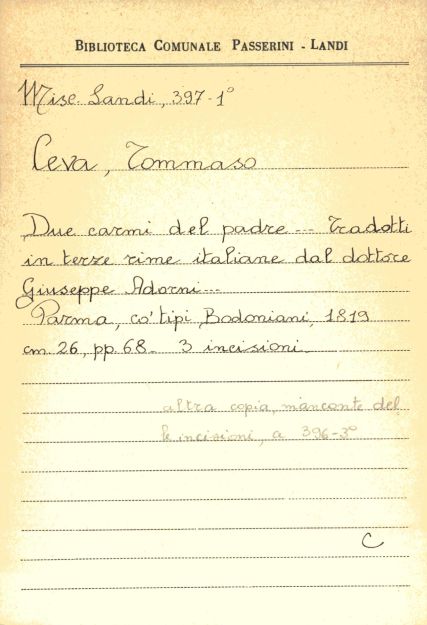 BIBLIOTECA COMUNALE PASSERINI - LANDI
Misc. Landi, 397-1°
Ceva, Tommaso
Due carmi del padre --- Tradotti
in terze rime italiane dal dottore
Giuseppe Adorni---
Parma, co' tipi Bodoniani, 1819
cm. 26, pp. 68- 3 incisioni-
altra copia, mancante del
le incisioni, a 396-3°
C